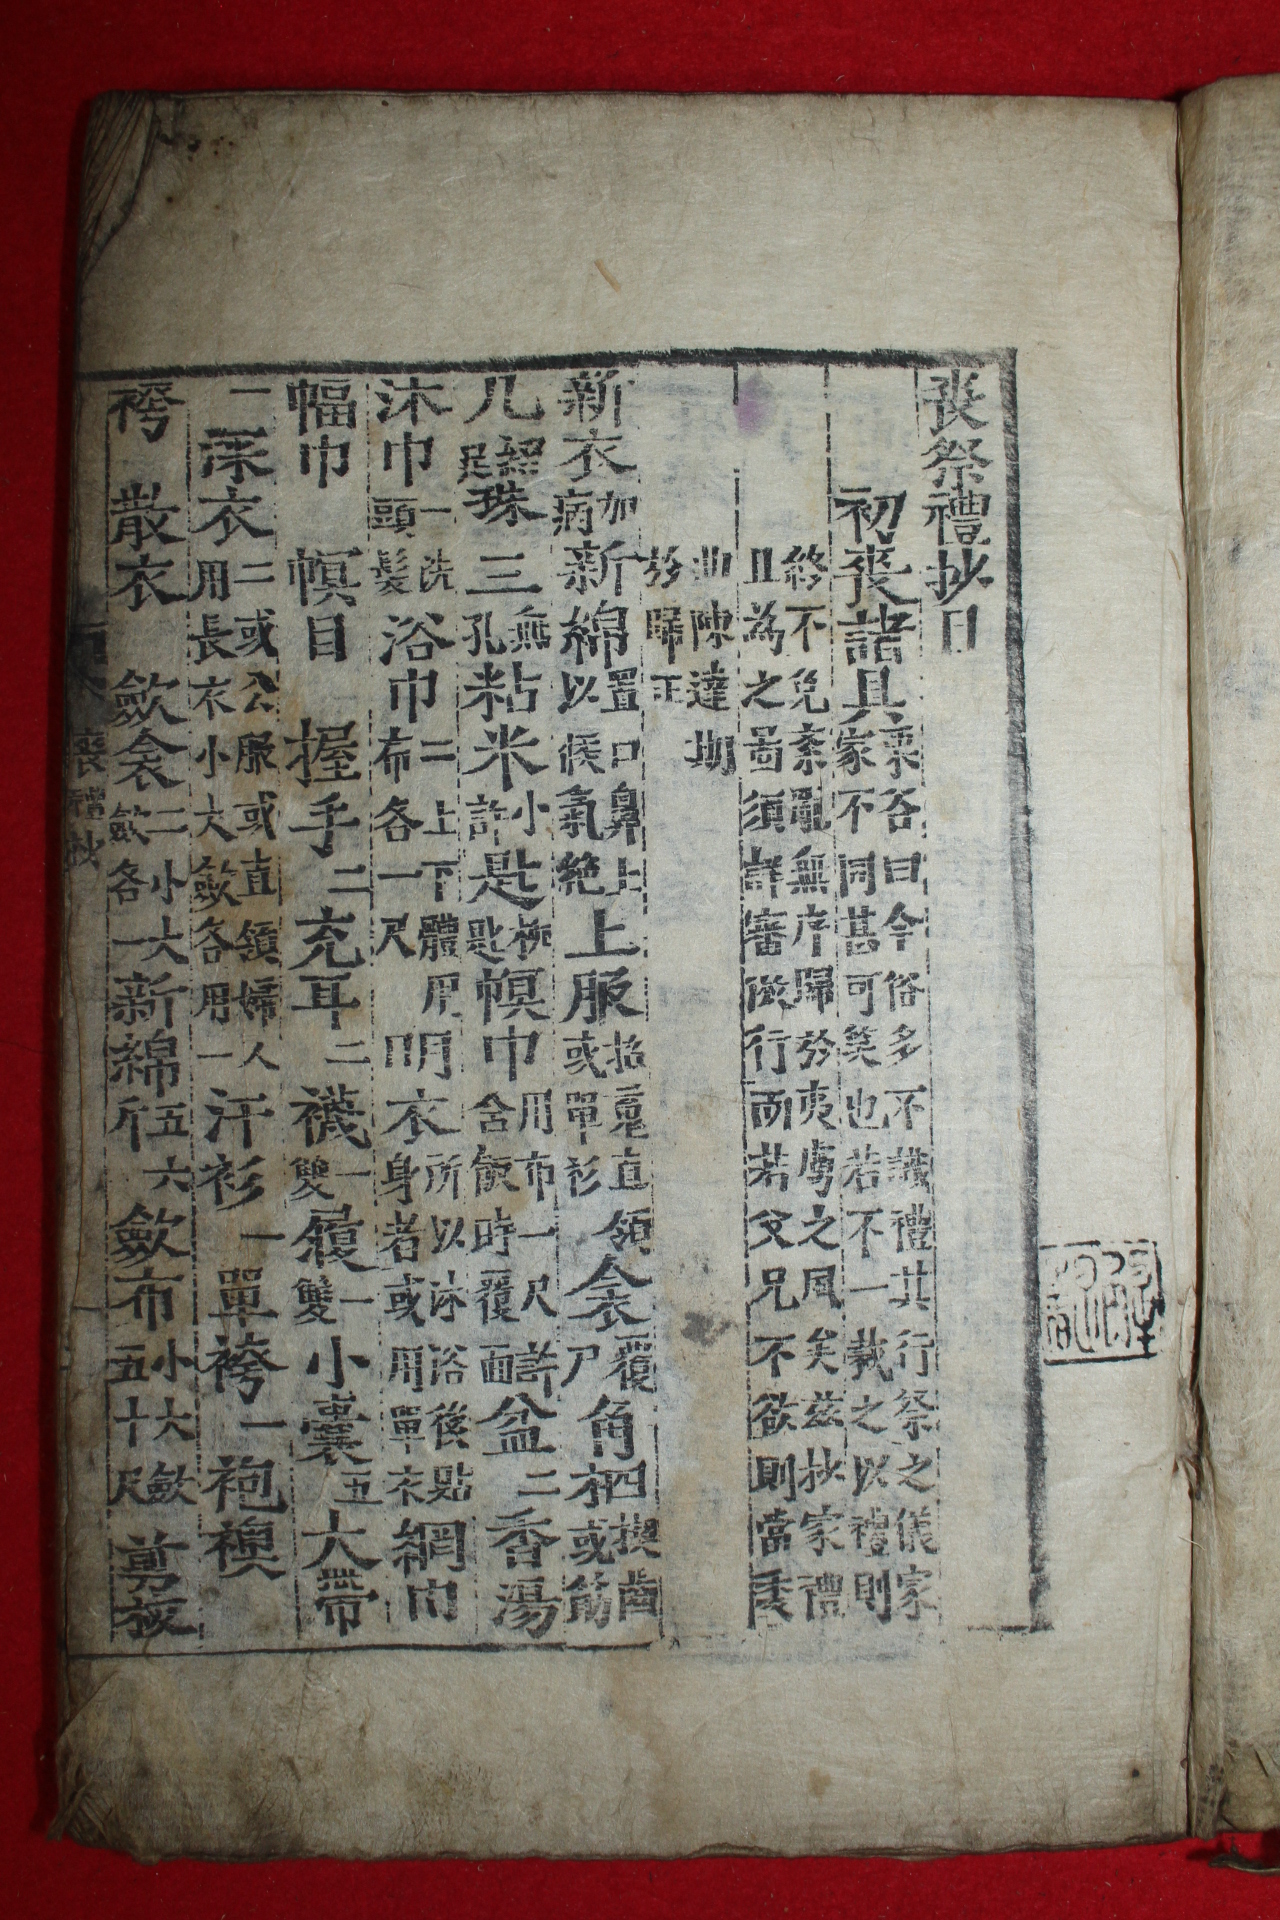 喪祭禮抄目
初喪諸具栗谷曰今俗多不識禮其行祭之儀家
家不同甚可笑也若不一裁之以禮則
終不免紊亂無序歸於夷虜之風矣玆抄家禮
且爲之啚須詳審倣行而若父兄不欲則當委
曲陳達期
於歸正
新衣加病新綿置口鼻上以候氣絶上服招魂直領或單衫衾覆尸角柶楔齒或筯
几綴足珠三無孔粘米小許匙柳匙幎巾用布一尺許含飯時覆面盆二香湯
沐巾一洗頭髮浴巾二上下體用布各一尺明衣所以沐浴後貼身者或用單衣網巾
幅巾 幎目 握手二充耳二襪一雙履一雙小囊五大帶
一深衣二或公服或直領婦人用長衣小大斂各用一汗衫一單袴一袍襖
袴 散衣 斂衾二小大斂各一新綿五六斤斂布小大斂五十尺剪板
喪禮抄